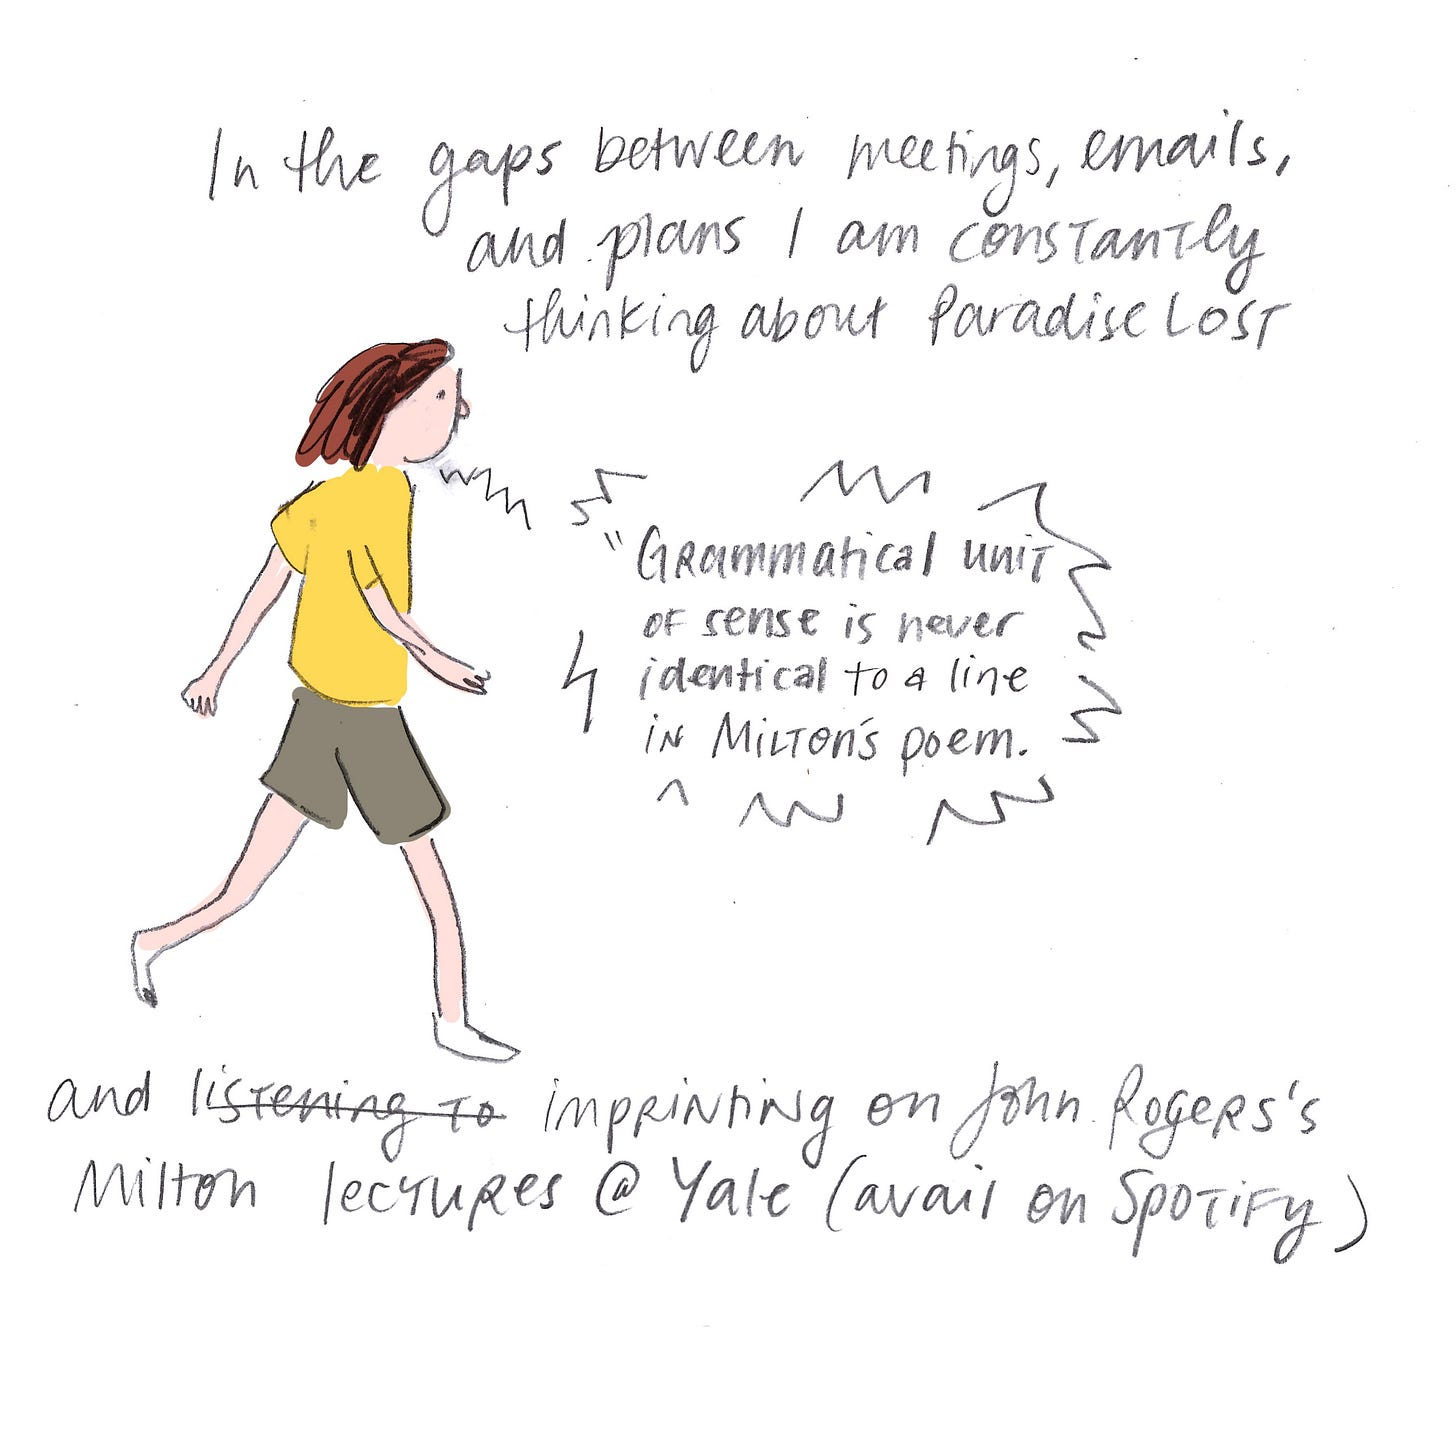 In the gaps between meetings, emails,
and plans I am constantly
thinking about Paradise Lost
"Grammatical unit
of sense is never
identical to a line
in Milton's poem.
and listening to imprinting on John Rogers's
Milton lectures @ Yale (avail on Spotify)